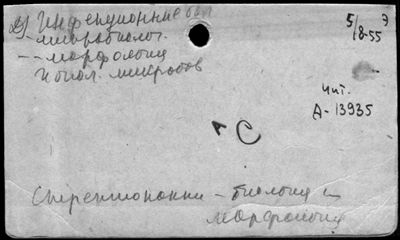 2) Инфекционные бол
- микробиолог.
- - морфология
и биол. микробов
5/8-55
Э
Чит.
А-13935
А С
Стрептококки - биология и
морфология